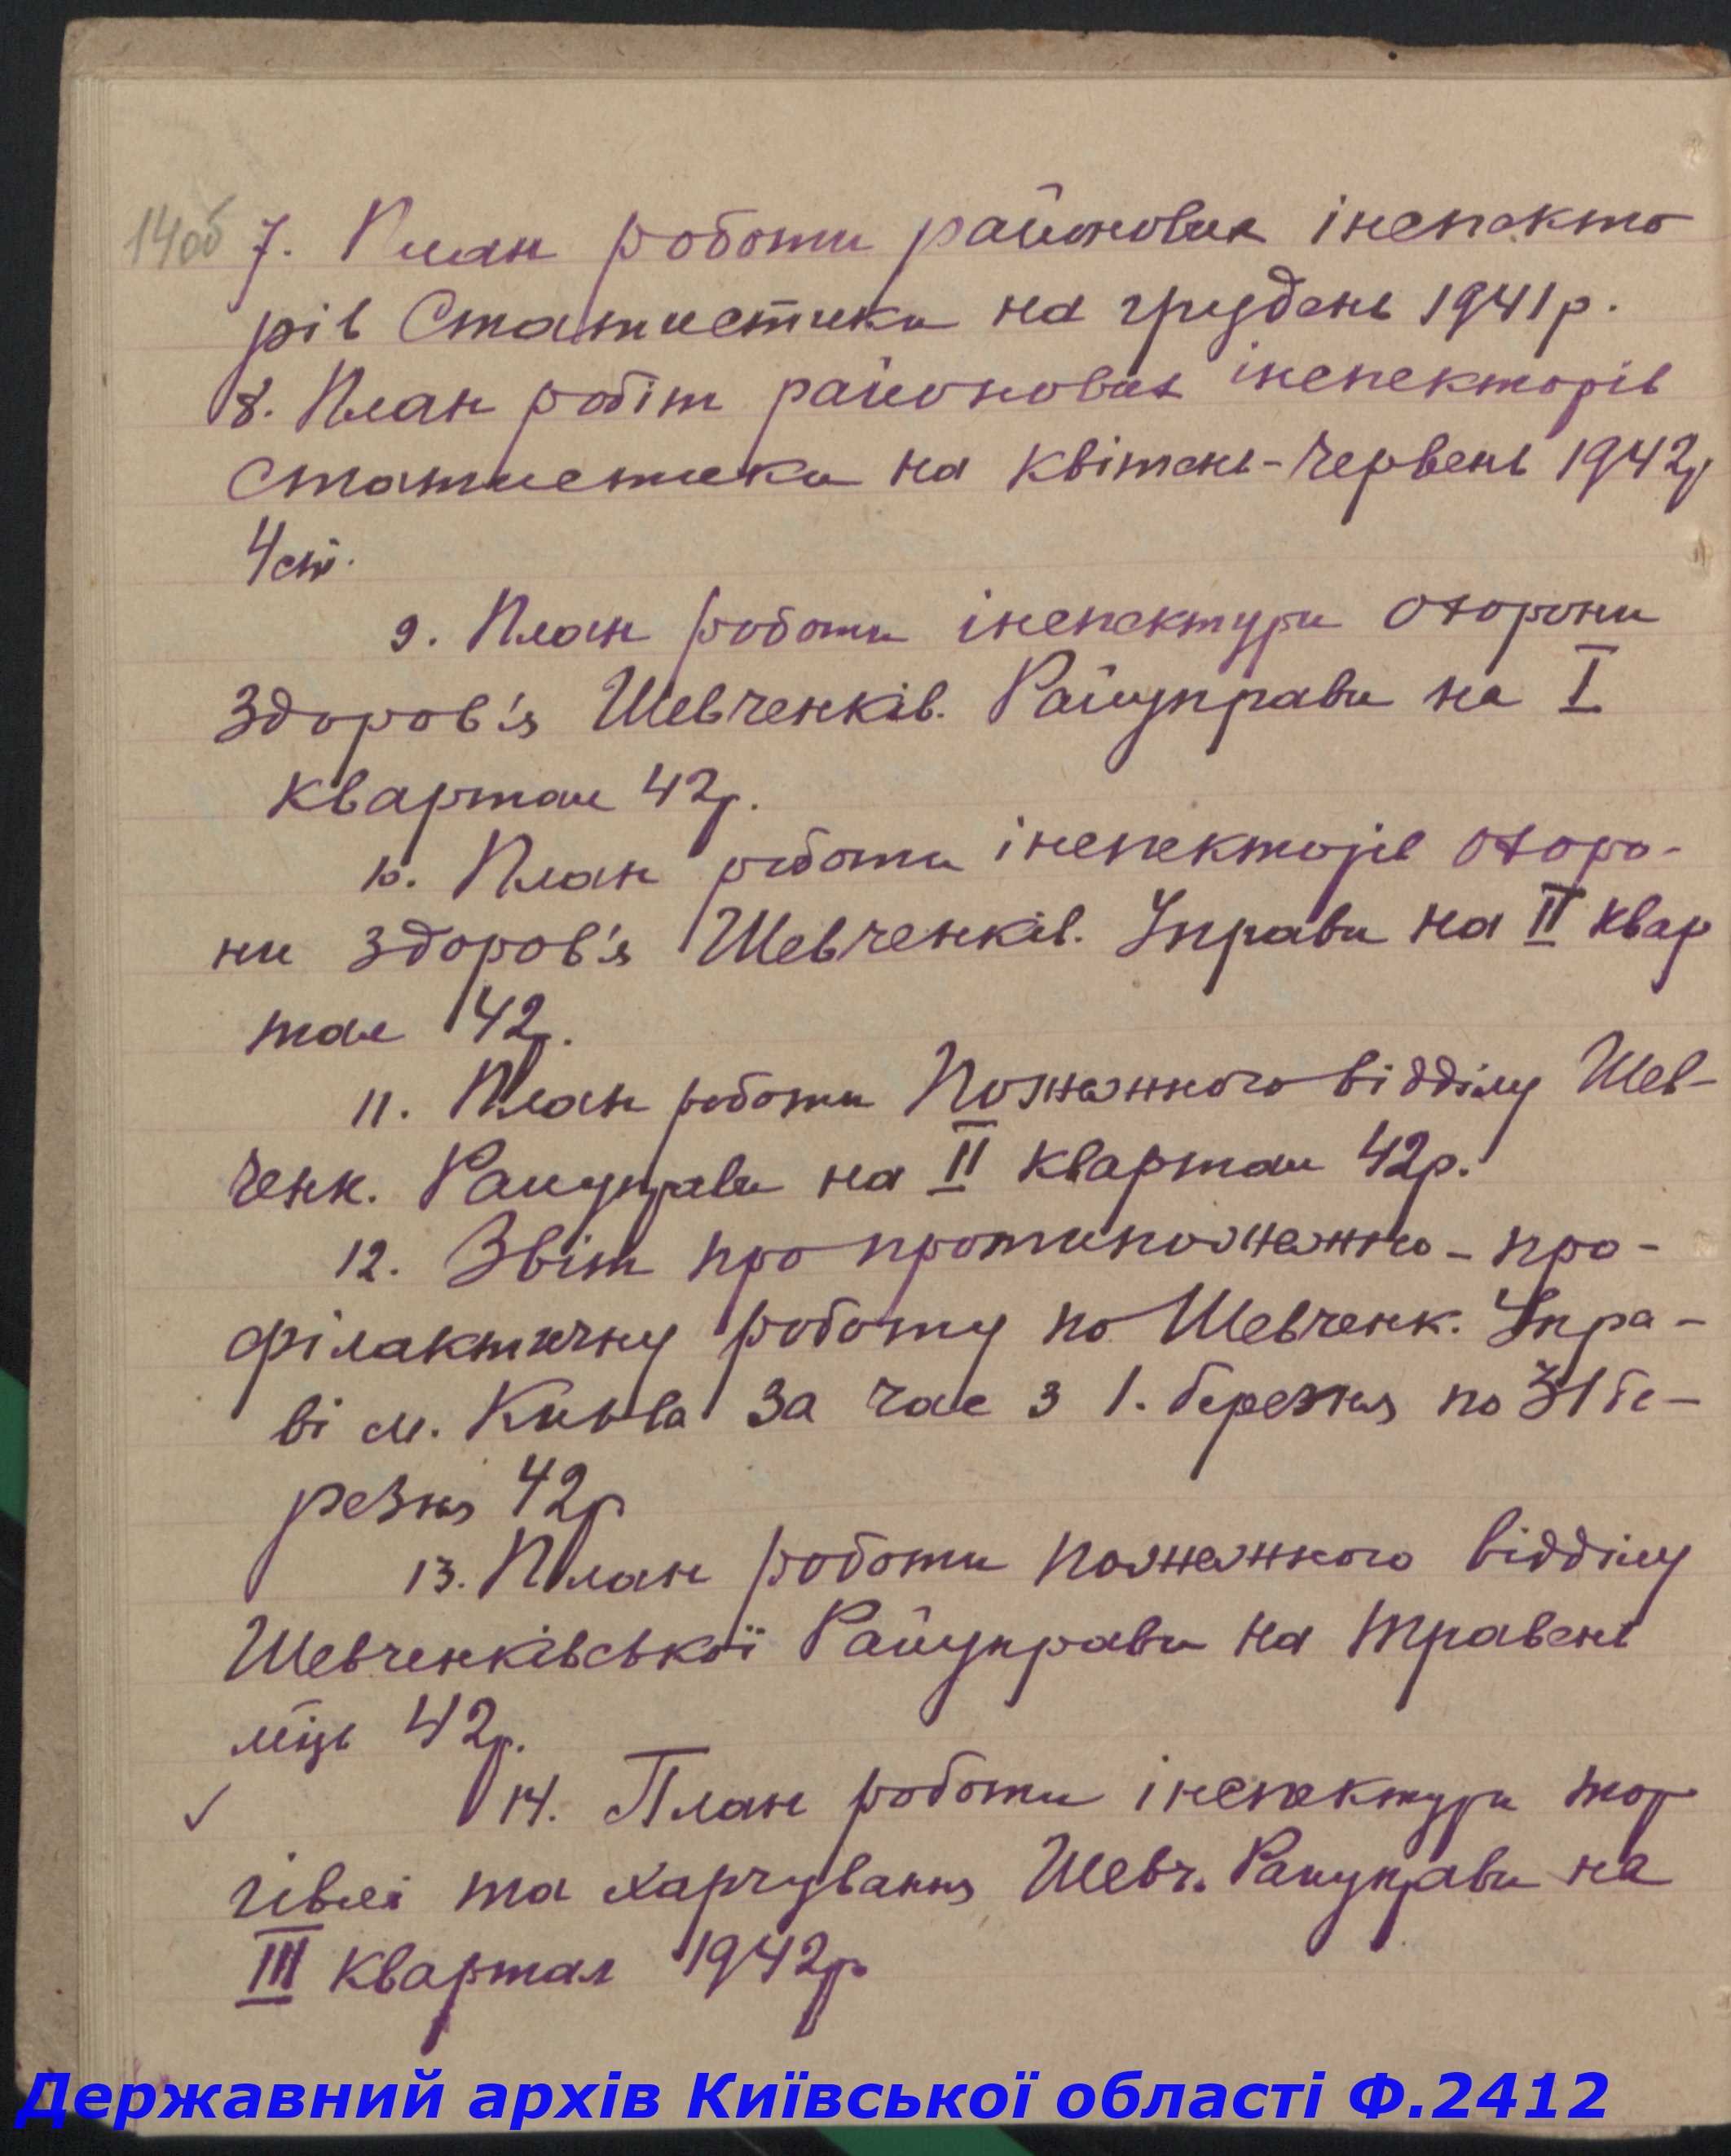 14об
7. План роботи районових інспекто
рів Статистики на грудень 1941р.
8. План робіт районових інспекторів
Статистики на квітень-червень 1942р
4 ст.
9. План роботи інспектури охорони
здоров'я Шевченків. Райуправи на I
квартал 42р.
10. План роботи інспекторів охоро-
ни здоров'я Шевченків. Управи на II квар
тал 42р.
11. План роботи Пожежного відділу Шев-
ченк. Райуправи на II квартал 42р.
12. Звіт про протипожежно-про-
філактичну роботу по Шевченк. Упра-
ві м. Київа за час з 1. березня по 31 бе-
резня 42р
13. План роботи пожежного відділу
Шевченківської Райуправи на травень
м-ць 42р.
✓ 14. План роботи інспектури тор
гівлі та харчування Шевч. Райуправи на
III квартал 1942р.
Державний архів Київської області Ф.2412